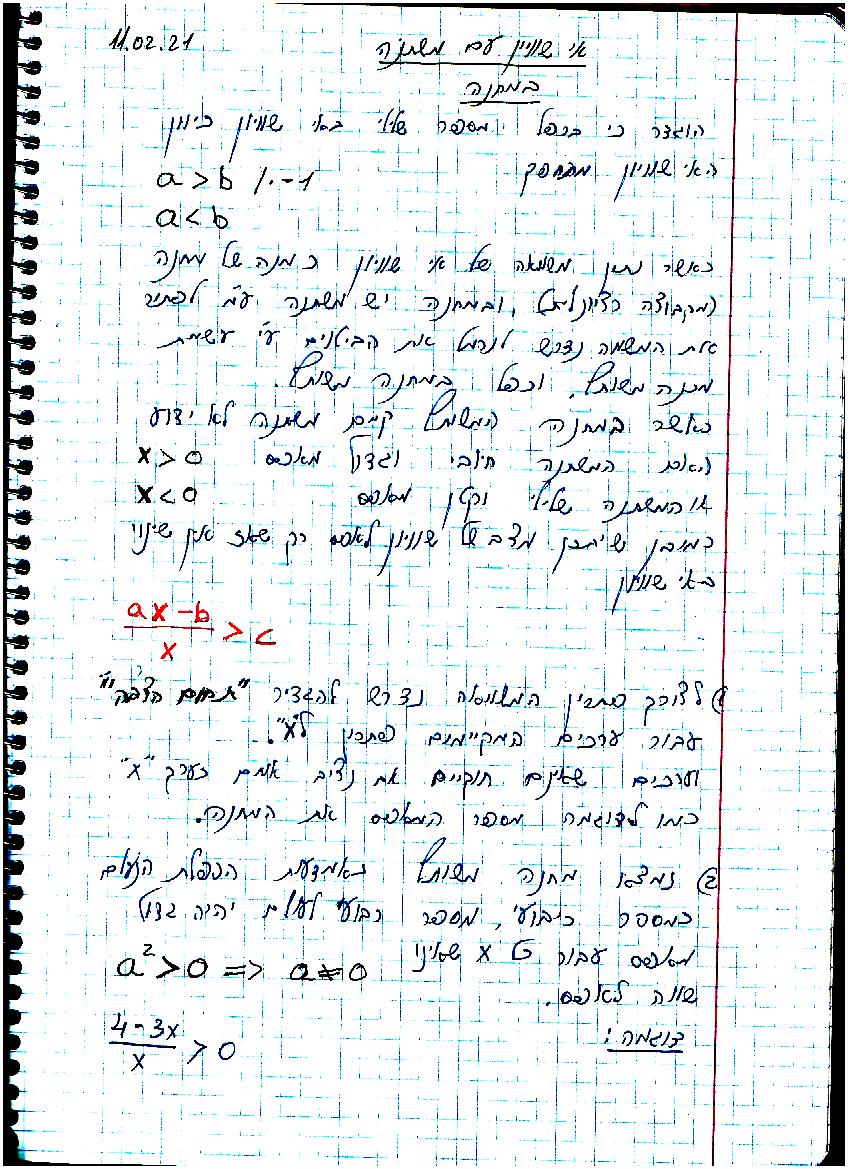 11.02.21
אי שוויון עם משתנה
במחנה
הוגדר כי בכפל מספר שלילי באי שוויון כיוון
האי שוויון מתהפך
a > b /·-1
a < b
כאשר נתון משוואה של אי שוויון כמנה של מחנה
(מקבוצה רציונלית), ובמחנה יש משתנה ע"מ לפתור
את המשימה נדרש לנרמל את הביטויים ע"י עשיית
מכנה משותף, וכפל במחנה משותף.
כאשר במחנה המשותף קיים משתנה לא ידוע
האם המשתנה חיובי וגדול מאפס x > 0
או המשתנה שלילי וקטן מאפס x < 0
כמובן שיתכן מצב של שוויון לאפס רק שאז אין שינוי
באי שוויון
ax - b / x > c
1) לצורך פתרון המשוואה נדרש להגדיר "תחום הצבה"
עבור ערכים המקיימים פתרון ל"x".
וערכים שאינם חוקיים אם נציב אותם כערך "x"
כמו לדוגמה מספר המאפס את המחנה.
2) נמצא מחנה משותף באמצעות הכפלת הנעלם
כמספר ריבועי, מספר רבועי לעולם יהיה גדול
מאפס עבור x שאינו
a² > 0 => a ≠ 0
שווה לאפס.
דוגמה:
4 - 3x / x > 0